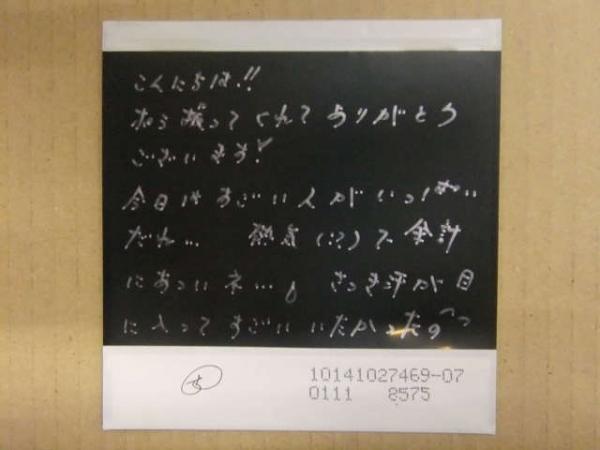 こんにちは!!
おら撮ってくれてありがとう
ございます!
今日はすごい人がいっぱい
だね... 熱気(!?)で余計
にあついネ...。さっき汗が目
に入ってすごいいたかったの
ち
10141027469-07
0111 8575